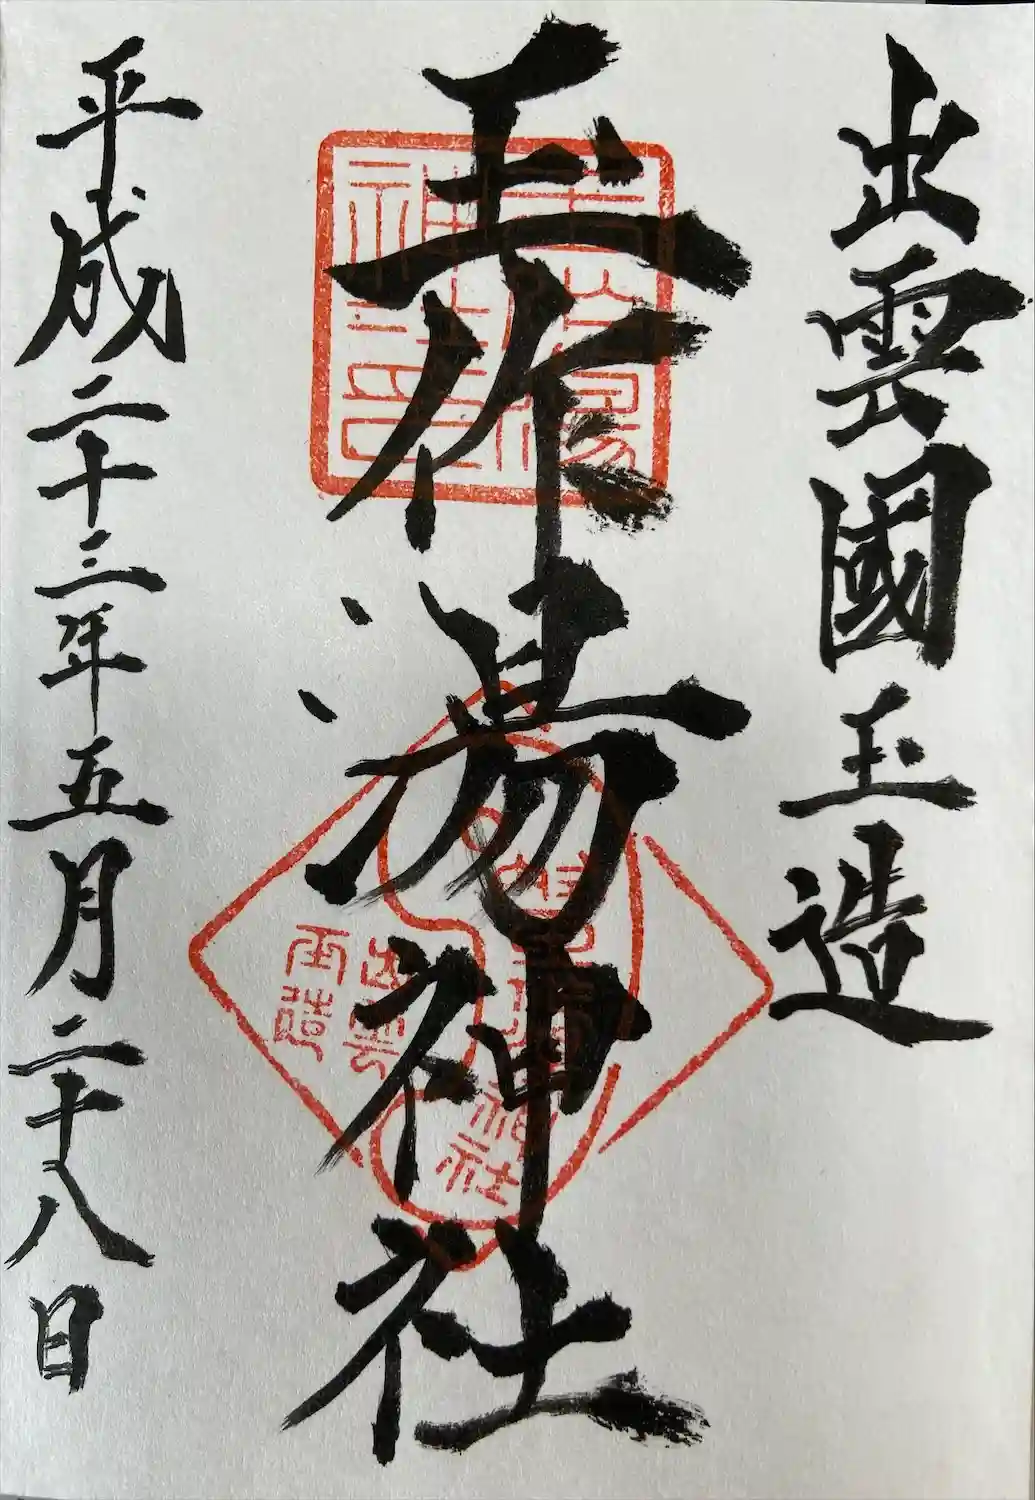 出雲國玉造
玉作湯神社
平成二十三年五月二十八日
玉作湯
神社印
出雲
玉造
神社